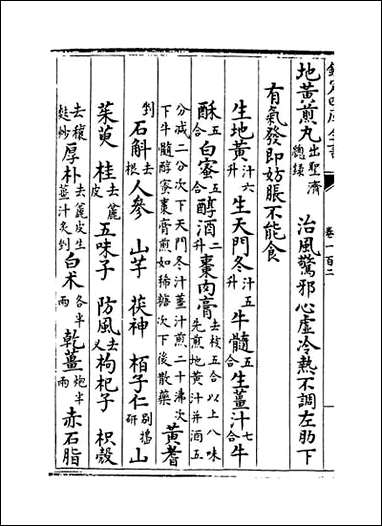 欽定四庫全書
卷一百二
地黄煎丸出聖濟總録 治風驚邪心虛冷熱不調左肋下
有氣發即妨脹不能食
生地黄汁六升 生天門冬汁五升 牛髓五合 生薑汁七合 牛
酥五合 白蜜五合 醇酒二升 棗肉膏去核五合以上八味先煎地黄汁并酒五
分减二分次下天門冬汁薑汁煎二十沸次下牛髓酥蜜棗膏煎如稀糖次下後散藥 黄耆
剉 石斛去根 人參 山芋 茯神 栢子仁别搗研 山
茱萸 桂去麄皮 五味子 防風去叉 枸杞子 枳殼
去穰麩炒 厚朴去麄皮生薑汁炙剉 白术各半兩 乾薑炮半兩 赤石脂